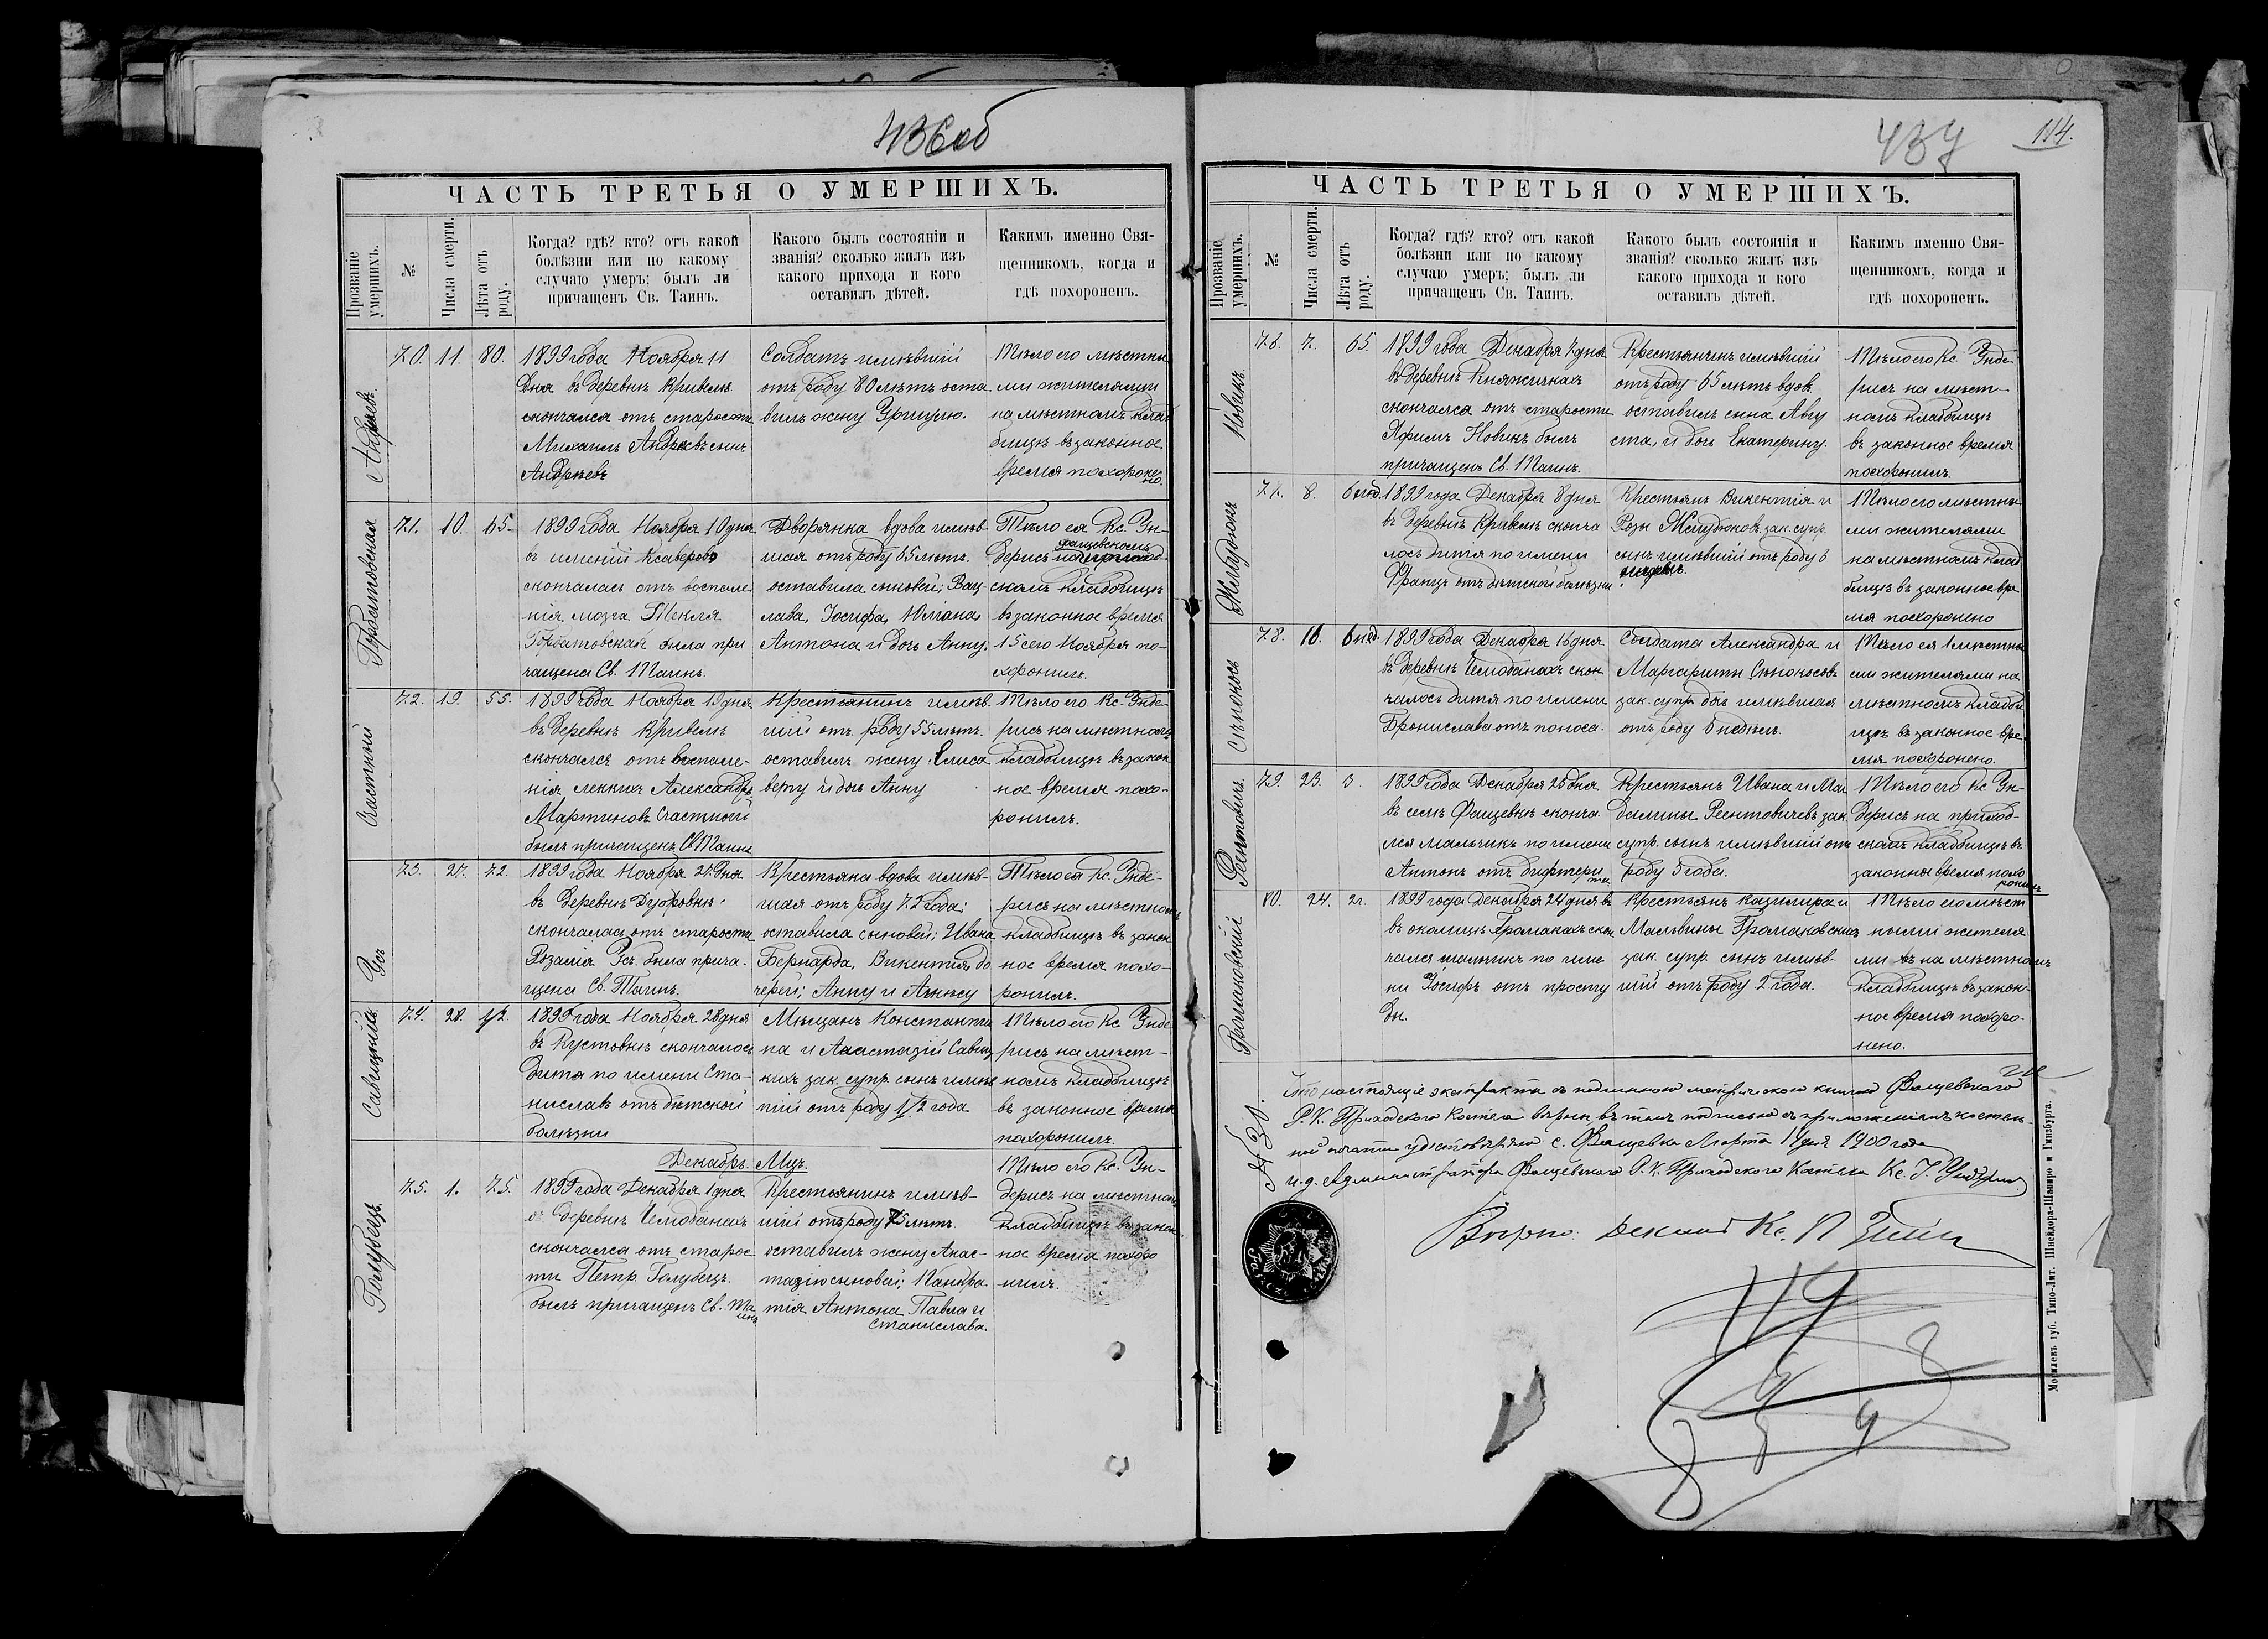 436об
ЧАСТЬ ТРЕТЬЯ О УМЕРШИХЪ.
Прозваніе умершихъ.
№
Числа смерти.
Лѣта отъ роду.
Когда? гдѣ? кто? отъ какой
болѣзни или по какому
случаю умеръ; былъ ли
причащенъ Св. Таинъ.
Какого былъ состояніи и
званія? сколько жилъ изъ
какого прихода и кого
оставилъ дѣтей.
Какимъ именно Свя-
щенникомъ, когда и
гдѣ похороненъ.
70. 11. 80.
1899 года Ноября 11
дня въ деревнѣ Кривель
скончался отъ старости
Михаилъ Андреевъ сынъ
Андреевъ
Солдатъ имѣвшій
отъ роду 80 лѣтъ оста
вилъ жену Уршулю.
Тѣло его мѣстны
ми жителями
на мѣстномъ клад
бищѣ въ законное
время похороне
но.
Горбатовская
71. 10. 65.
1899 года Ноября 10 дня
въ имѣніи Ксаверово
скончалась отъ воспале
нія мозга Текля
Горбатовская была при
чащена Св. Таинъ.
Дворянка вдова имѣв-
шая отъ роду 65 лѣтъ.
оставила сыновей; Вац-
лава, Іосифа, Юліана,
Антона и дочь Анну.
Тѣло ея Кс. Ун-
фащевскомъ
дерисъ на приход-
скомъ кладбищѣ
въ законное время
15 сего Ноября по-
хоронилъ.
Счастный
72. 19. 55.
1899 года Ноября 19 дня
въ деревнѣ Кривель
скончался отъ воспале-
нія легкихъ Александръ
Мартиновъ Счастный
былъ причащенъ Св. Таинъ
Крестьянинъ имѣв.
шій отъ роду 55 лѣтъ.
оставилъ жену Елиса
вету и дочь Анну
Тѣло его Кс. Унде-
рисъ на мѣстномъ
кладбищѣ въ закон
ное время похо-
ронилъ.
Усъ
73. 27. 72.
1899 года Ноября 27 дня
въ деревнѣ Дубровкѣ
скончалась отъ старости
Розалія Усъ. была прича.
щена Св. Таинъ.
Крестьянка вдова имѣв-
шая отъ роду 72 года;
оставила сыновей; Ивана
Бернарда, Викентія, до
черей; Анну и Агнѣсу
Тѣло ея Кс. Унде-
рисъ на мѣстномъ
кладбищѣ въ закон
ное время похо-
ронилъ.
74. 28. 1/2.
1899 года Ноября 28 дня
въ Кустовкѣ скончалось
дитя по имени Ста-
ниславъ отъ дѣтской
болѣзни
Мѣщанъ Константи
на и Анастазіи Савиц
кихъ зак. супр. сынъ имѣв
шій отъ роду 1/2 года
Тѣло его Кс. Унде
рисъ на мѣст-
номъ кладбищѣ
въ законное время
похоронилъ.
Декабрь. Мцъ.
Голубецъ.
75. 1. 75.
1899 года Декабря 1 дня
въ деревнѣ Чемоданахъ
скончался отъ старос
ти Петръ Голубецъ.
былъ причащенъ Св. Та
инъ
Крестьянинъ имѣв-
шій отъ роду 75 лѣтъ.
оставилъ жену Анас-
тазію сыновей; Панкра.
тія Антона Павла и
Станислава.
Тѣло его Кс. Ун-
дерисъ на мѣстномъ
кладбищѣ въ закон
ное время похоро
нилъ.
437
114.
ЧАСТЬ ТРЕТЬЯ О УМЕРШИХЪ.
Прозваніе умершихъ.
№
Числа смерти.
Лѣта отъ роду.
Когда? гдѣ? кто? отъ какой
болѣзни или по какому
случаю умеръ; былъ ли
причащенъ Св. Таинъ.
Какого былъ состоянія и
званія? сколько жилъ изъ
какого прихода и кого
оставилъ дѣтей.
Какимъ именно Свя-
щенникомъ, когда и
гдѣ похороненъ.
Новикъ.
76. 7. 65.
1899 года Декабря 7 дня
въ деревнѣ Княжинкахъ
скончался отъ старости
Яфимъ Новикъ былъ
причащенъ Св. Таинъ.
Крестьянинъ имѣвшій
отъ роду 65 лѣтъ вдов.
оставилъ сына Авгу
ста, и дочь Екатерину.
Тѣло его Кс. Унде-
рисъ на мѣст-
номъ кладбищѣ
въ законное время
похоронилъ.
77. 8. 6 нед.
1899 года Декабря 8 дня
въ деревнѣ Кривель сконча
лось дитя по имени
Францъ отъ дѣтской болѣзни.
Крестьянъ Викентія и
зак. супр.
сынъ имѣвшій отъ роду 6
Тѣло его мѣстны
ми жителями
на мѣстномъ клад
бищѣ въ законное вре
мя похоронено
Сѣнокосъ
78. 16. 6 нед.
1899 года Декабря 16 дня
въ деревнѣ Чемоданахъ скон
чалось дитя по имени
Бронислава отъ поноса.
Солдата Александра и
Маргариты Сѣнокосовъ
зак. супр. дочь имѣвшая
отъ роду 6 недѣль.
Тѣло ея мѣстны
ми жителями на
мѣстномъ кладби
щѣ въ законное вре.
мя похоронено.
79. 23. 3.
1899 года Декабря 23 дня
въ селѣ Фащевкѣ сконча.
лся мальчикъ по имени
Антонъ отъ дифтери
та
Крестьянъ Ивана и Маг
далины Реентовичевъ зак.
супр. сынъ имѣвшій отъ
роду 3 года.
Тѣло его Кс. Ун-
дерисъ на приход-
скомъ кладбищѣ въ
законное время похо
ронилъ
Громаковскій
80. 24. 2г.
1899 года Декабря 24 дня в
въ околицѣ Громакахъ скон
чался мальчикъ по име
ни Іосифъ отъ просту
ды.
Крестьянъ Казимира и
Мальвины Громаковскихъ
зак. супр. сынъ имѣв-
шій отъ роду 2 года.
Тѣло его мѣст
ными жителя
ми на мѣстномъ
кладбищѣ въ закон-
ное время похоро-
нено.
Что настоящіе экстракты съ подлинною метрическою книгою Фащевскаго
Р. К. Приходскаго Костела вѣрны, въ томъ подписью съ приложеніемъ костель-
ной печати удостовѣряю с. Фащевка Марта 14 дня 1900 года
и. д. Администратора Фащевскаго Р. К. Приходскаго Костела Кс. І. Ундерисъ
Вѣрно: Деканъ Кс. П.
114
Могилевъ губ. Типо-Лит. Шнейдора-Шапиро и Гинзбурга.